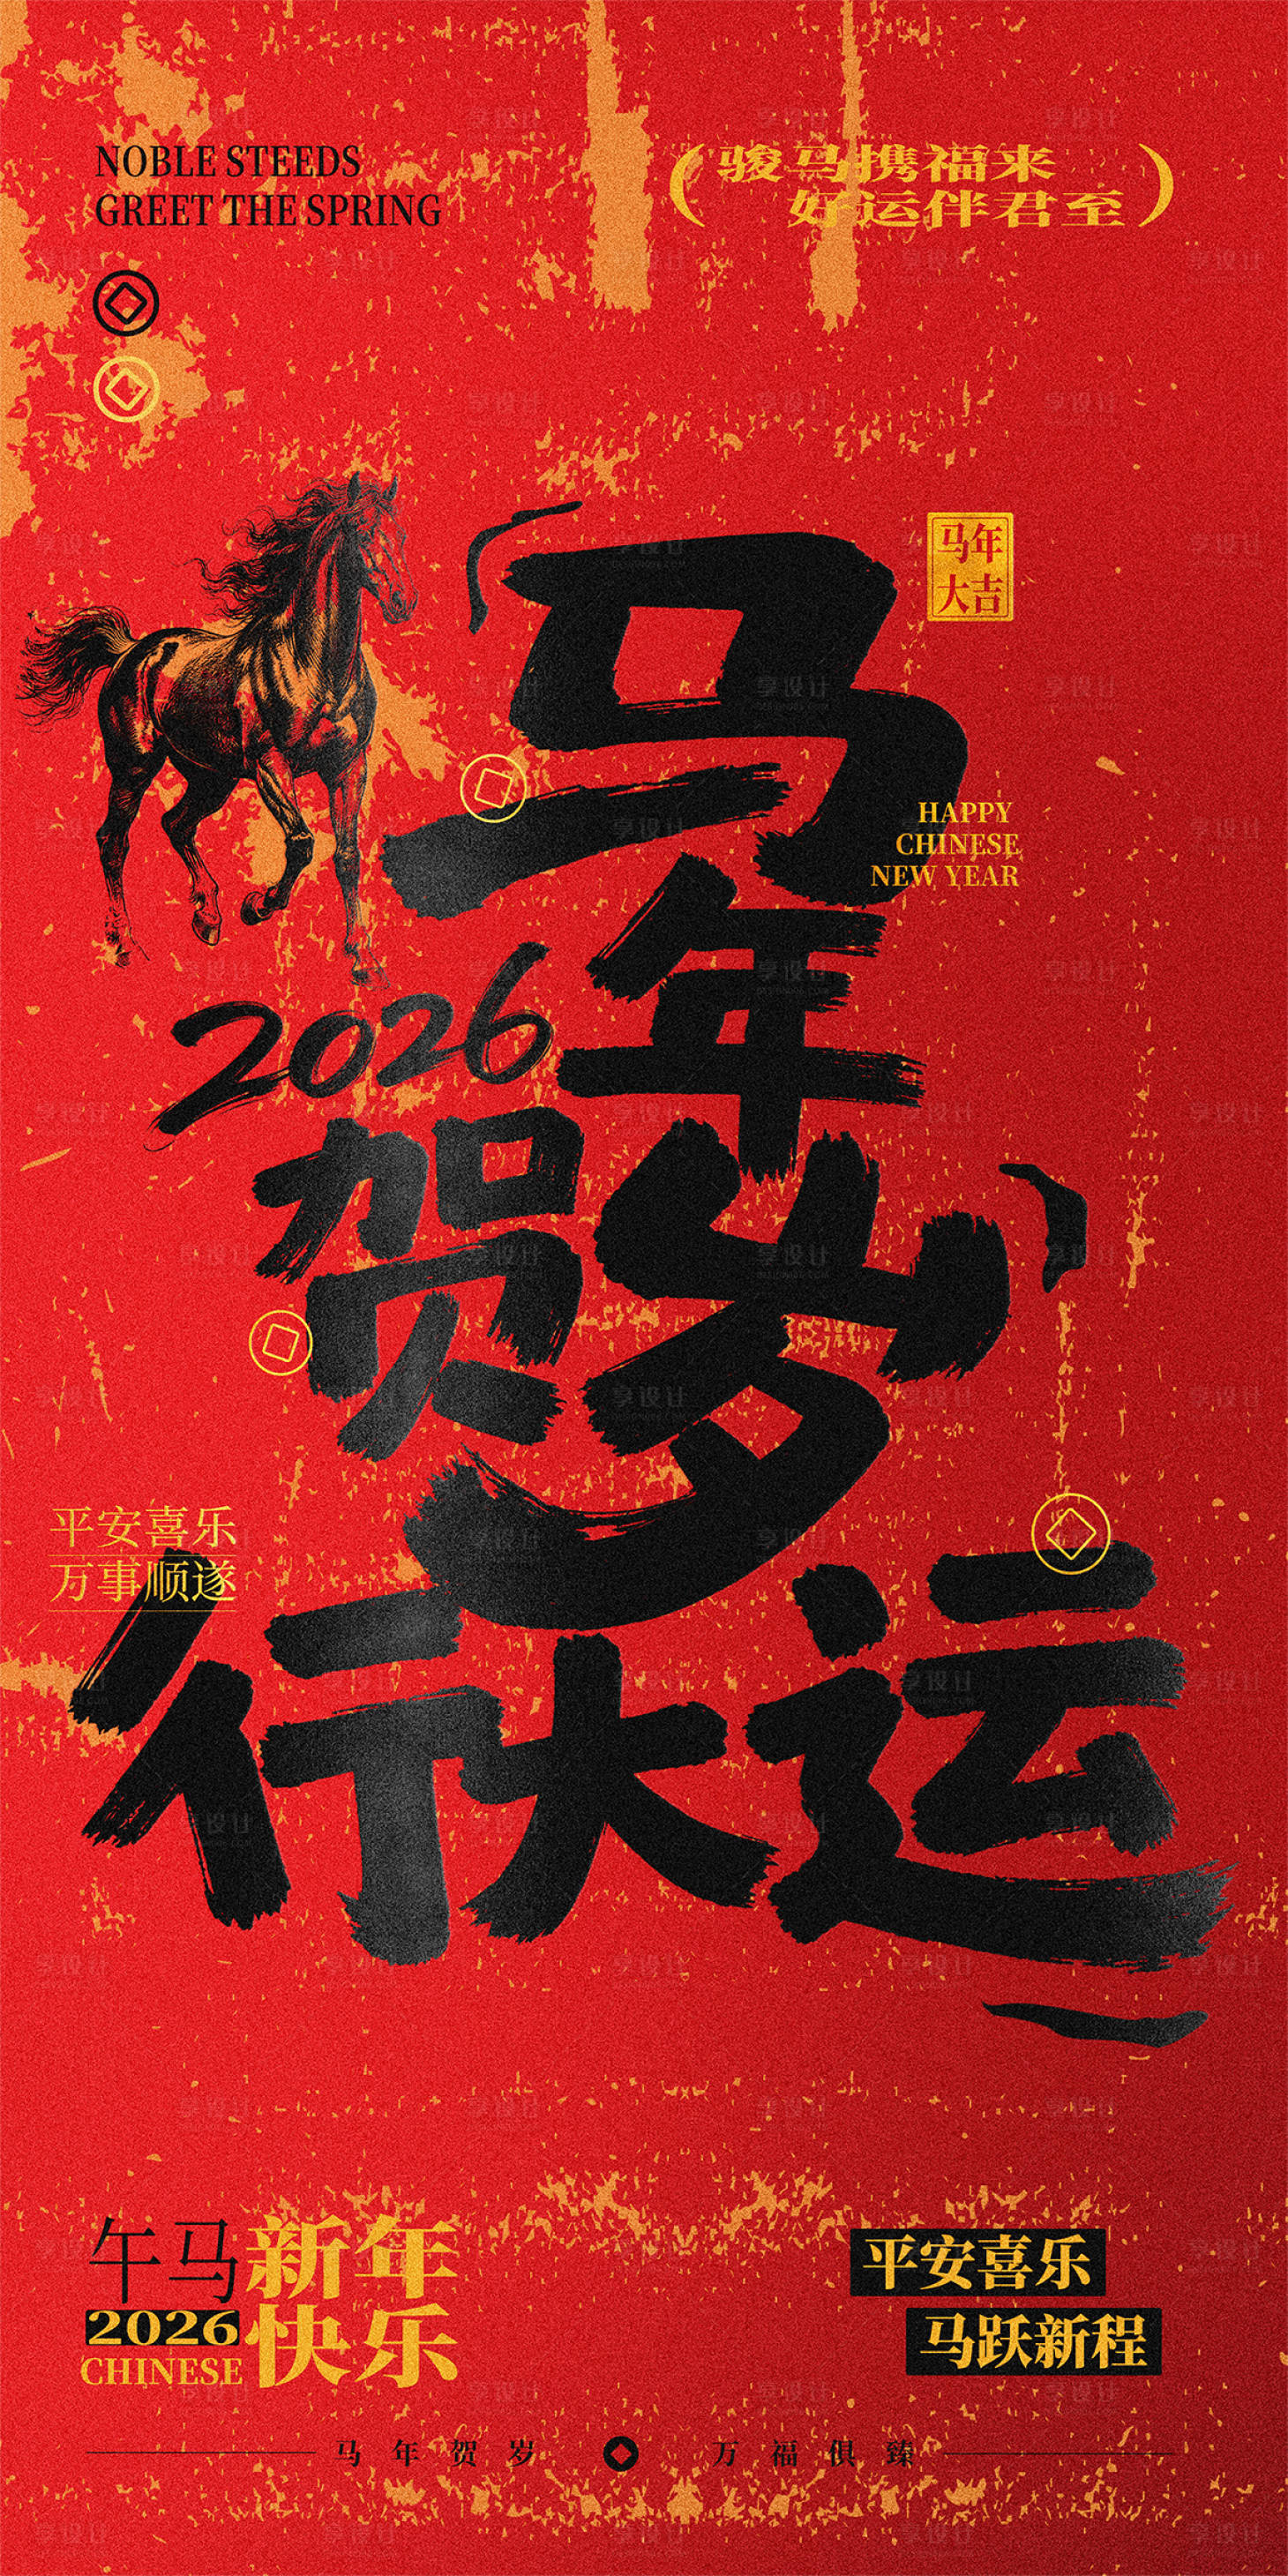 NOBLE STEEDS
GREET THE SPRING
(骏马携福来
好运伴君至)
马年
大吉
马
HAPPY
CHINESE
NEW YEAR
年
2026
贺岁
平安喜乐
万事顺遂
行大运
午马新年
2026
CHINESE
快乐
平安喜乐
马跃新程
马年贺岁 万福俱臻
享设计